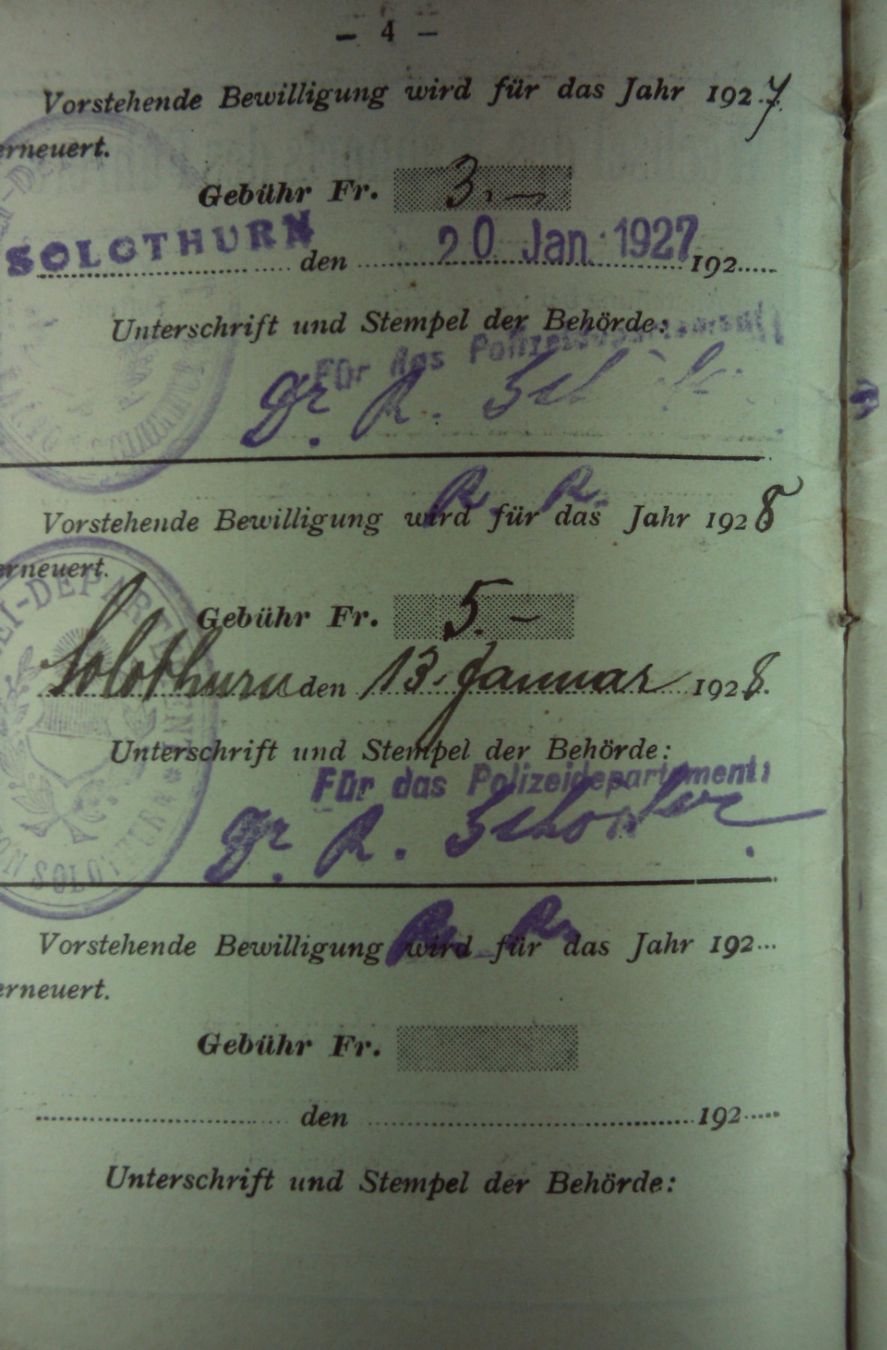 - 4 -
Vorstehende Bewilligung wird für das Jahr 1927
erneuert.
Gebühr Fr. 3.-
SOLOTHURN den 20. Jan. 1927 192
Unterschrift und Stempel der Behörde:
Für das Polizeidepartement
R.
Vorstehende Bewilligung wird für das Jahr 1928
erneuert.
Gebühr Fr. 5.-
Solothurn den 13. Januar 1928.
Unterschrift und Stempel der Behörde:
Für das Polizeidepartement:
R.
SOLOTHURN
Vorstehende Bewilligung wird für das Jahr 192
erneuert.
Gebühr Fr.
den 192
Unterschrift und Stempel der Behörde: